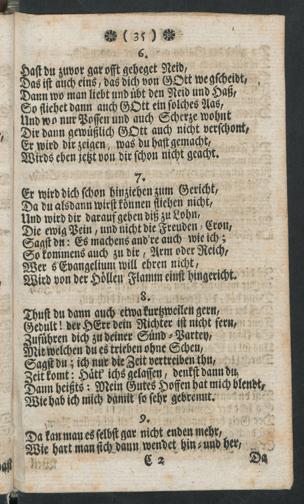 ( 35 )
6.
Hast du zuvor gar offt geheget Neid,
Das ist auch eins, das dich von GOtt wegscheidt,
Dann wo man liebt und übt den Neid und Haß,
So fliehet dann auch GOtt ein solches Aas,
Und wo nur Possen und auch Scherze wohnt
Dir dann gewüßlich GOtt auch nicht verschont,
Er wird dir zeigen, was du hast gemacht,
Wirds eben jetzt von dir schon nicht geacht.
7.
Er wird dich schon hinziehen zum Gericht,
Da du alsdann wirst können fliehen nicht,
Und wird dir darauf geben diß zu Lohn,
Die ewig Pein, und nicht die Freuden-Cron,
Sagst du: Es machens and're auch wie ich;
So kommens auch zu dir, Arm oder Reich,
Wer s Evangelium will ehren nicht,
Wird von der Höllen Flamm einst hingericht.
8.
Thust du dann auch etwa kurtzweilen gern,
Gedult! der HErr dein Richter ist nicht fern,
Zuführen dich zu deiner Sünd-Partey,
Mit welchen du es trieben ohne Scheu,
Sagst du; ich nur die Zeit vertreiben thu,
Zeit komt: Hätt' ichs gelassen, denkst dann du,
Dann heißts: Mein Gutes Hoffen hat mich blendt,
Wie hab ich mich damit so sehr gebrennt.
9.
Da kan man es selbst gar nicht enden mehr,
Wie hart man sich dann wendet hin- und her,
C 2
Da